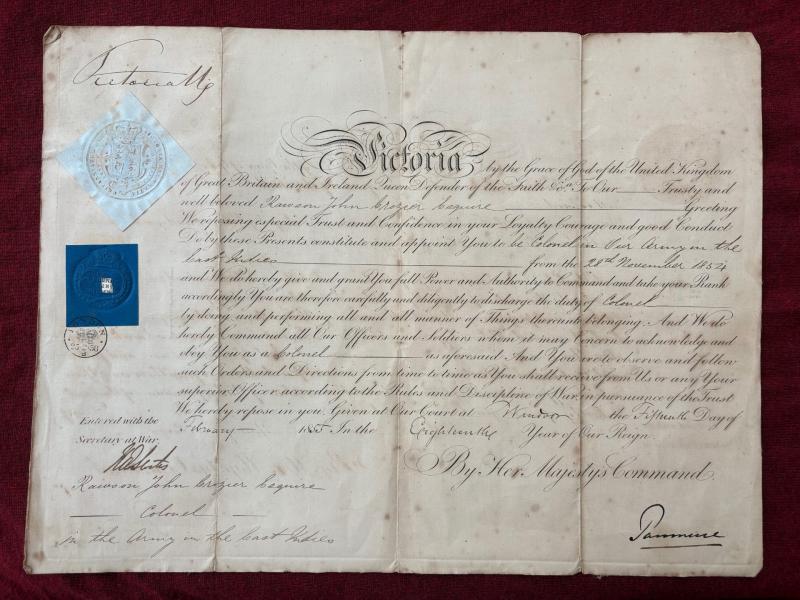 Victoria R
Victoria by the Grace of God of the United Kingdom
of Great Britain and Ireland Queen Defender of the Faith &c.a To Our Trusty and
well beloved Rawson John Crozier Esquire Greeting
We reposing especial Trust and Confidence in your Loyalty Courage and good Conduct
Do by these Presents constitute and appoint You to be Colonel in Our Army in the
East Indies from the 28th November 1854
and We do hereby give and grant You full Power and Authority to Command and take your Rank
accordingly You are therefore carefully and diligently to discharge the duty of Colonel
by doing and performing all and all manner of Things thereunto belonging And We do
hereby Command all Our Officers and Soldiers whom it may Concern to acknowledge and
obey You as a Colonel as aforesaid And You are to observe and follow
such Orders and Directions from time to time as You shall receive from Us or any Your
superior Officer according to the Rules and Discipline of War in pursuance of the Trust
We hereby repose in you Given at Our Court at Windsor the Fifteenth Day of
February 1855 In the Eighteenth Year of Our Reign
Entered with the
Secretary at War.
By Her Majestys Command
Rawson John Crozier Esquire
Colonel
in the Army in the East Indies
Panmure